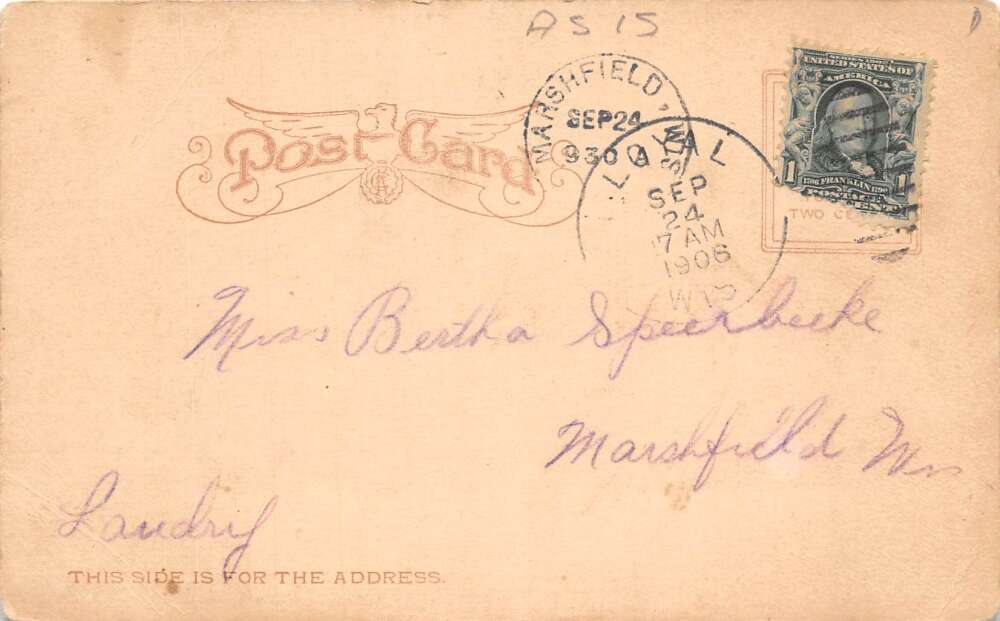 AS 15
Post Card
MARSHFIELD, WIS
SEP 24
930 A
LOYAL
SEP
24
7 AM
1906
WIS
SERIES 1902
UNITED STATES OF
AMERICA
1 FRANKLIN 1
POSTAGE
CENT
TWO CE
Miss Bertha Speerbecke
Marshfield Wis
Laudry
THIS SIDE IS FOR THE ADDRESS.